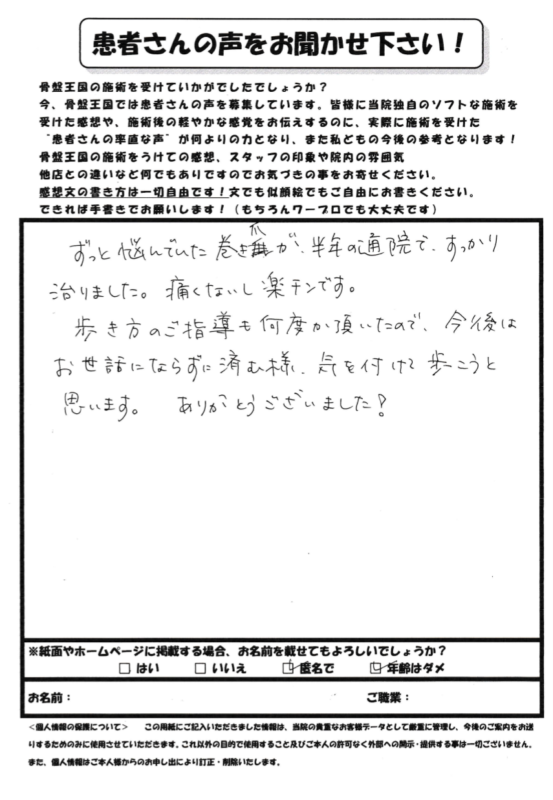 患者さんの声をお聞かせ下さい！
骨盤王国の施術を受けていかがでしたでしょうか？
今、骨盤王国では患者さんの声を募集しています。皆様に当院独自のソフトな施術を
受けた感想や、施術後の軽やかな感覚をお伝えするのに、実際に施術を受けた
“患者さんの率直な声”が何よりの力となり、また私どもの今後の参考となります！
骨盤王国の施術をうけての感想、スタッフの印象や院内の雰囲気
他店との違いなど何でもありですのでお気づきの事をお寄せください。
感想文の書き方は一切自由です！文でも似顔絵でもご自由にお書きください。
できれば手書きでお願いします！（もちろんワープロでも大丈夫です）
ずっと悩んでいた巻き爪が、半年の通院で、すっかり
治りました。痛くないし楽チンです。
歩き方のご指導も何度か頂いたので、今後は
お世話にならずに済む様、気を付けて歩こうと
思います。 ありがとうございました！
※紙面やホームページに掲載する場合、お名前を載せてもよろしいでしょうか？
□ はい □ いいえ ☑ 匿名で ☑ 年齢はダメ
お名前： ご職業：
＜個人情報の保護について＞ この用紙にご記入いただきました情報は、当院の貴重なお客様データとして厳重に管理し、今後のご案内をお送
りするためのみに使用させていただきます。これ以外の目的で使用すること及びご本人の許可なく外部への開示・提供する事は一切ございません。
また、個人情報はご本人様からのお申し出により訂正・削除いたします。